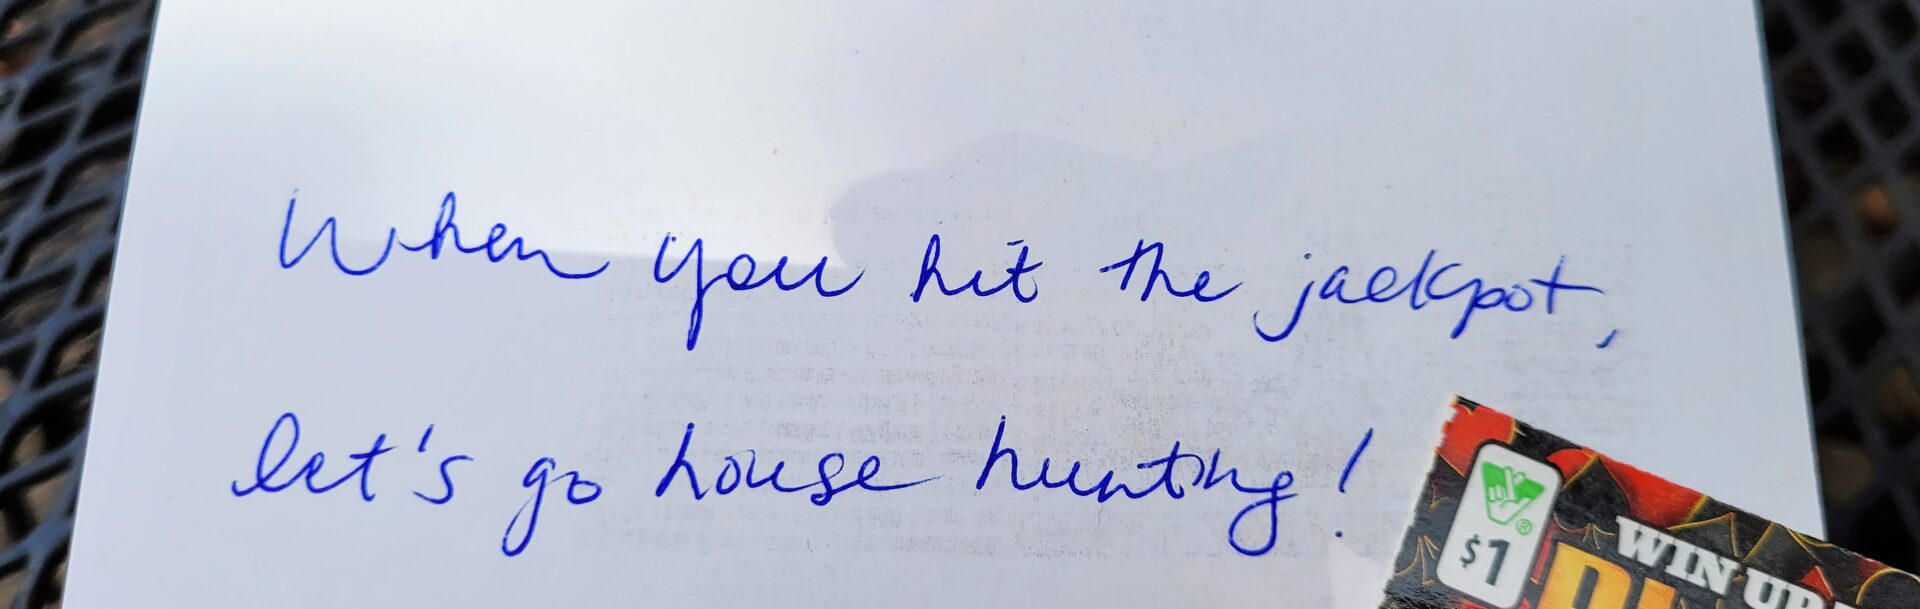 When you hit the jackpot,
let's go house hunting!
$1
WIN UP